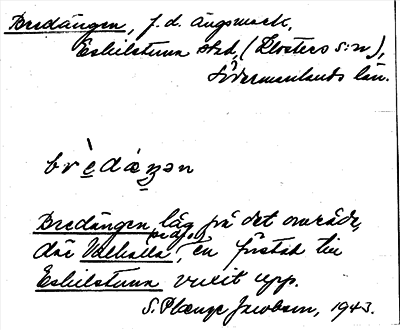 Bredängen, f.d. ängsmark,
Eskilstuna stad, (Klosters s:n),
Södermanlands län.
brèdæŋən
Bredängen låg på det område,
där Valhalla, en förstad till
Eskilstuna vuxit upp.
S. Plænge Jacobson, 1943.